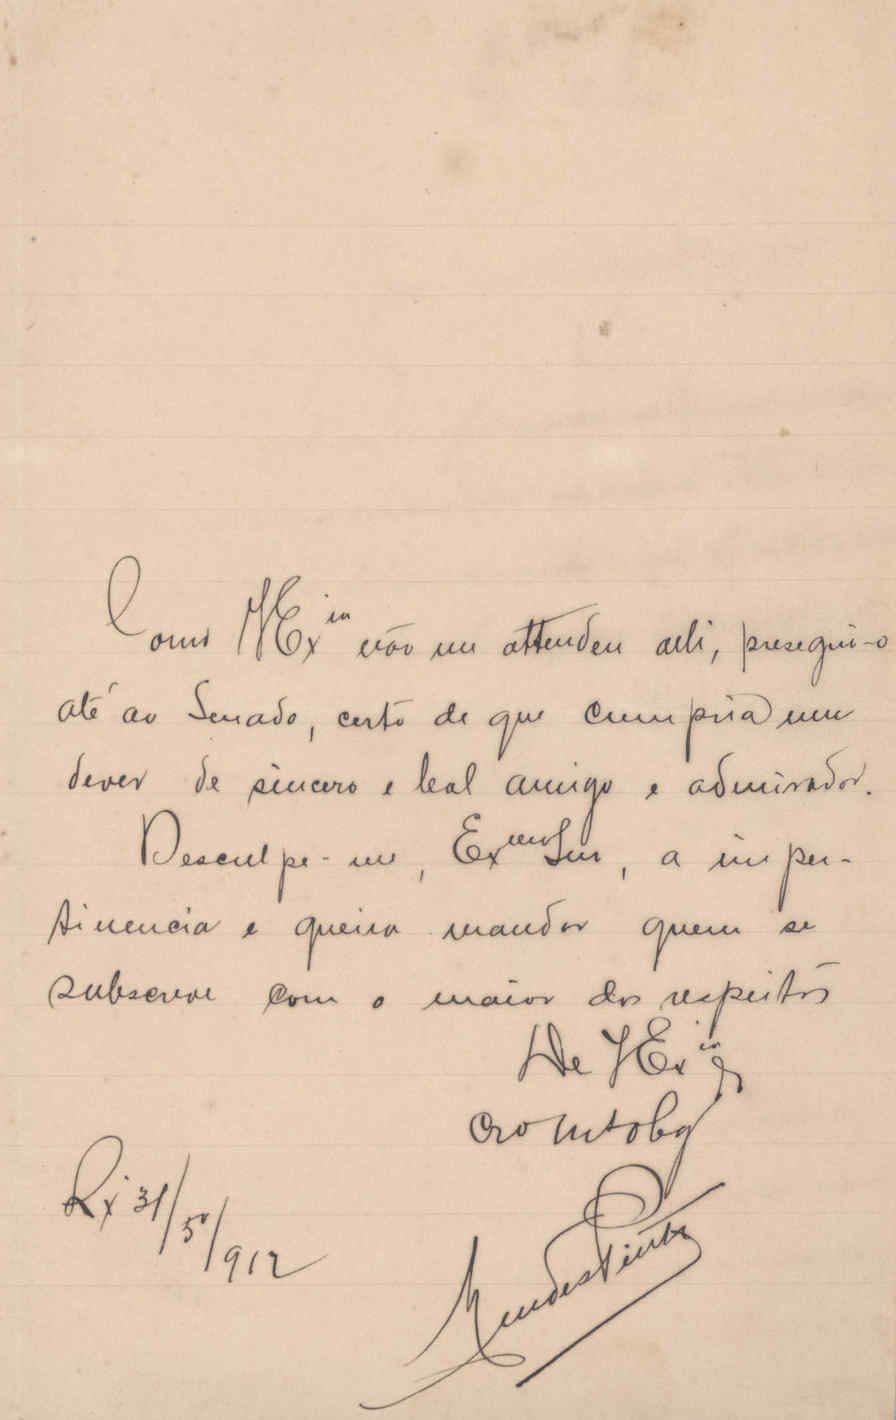 Como V Ex.ia não me attendeu alli, persegui-o
até ao Senado, certo de que cumpria um
dever de sincero e leal amigo e admirador.
Desculpe-me, Exmo Snr, a imper-
tinencia e queira mandar quem se
subscreve com o maior dos respeitos
De V Ex.ia
cro mto obg
31/5/912
Mendes Pinto